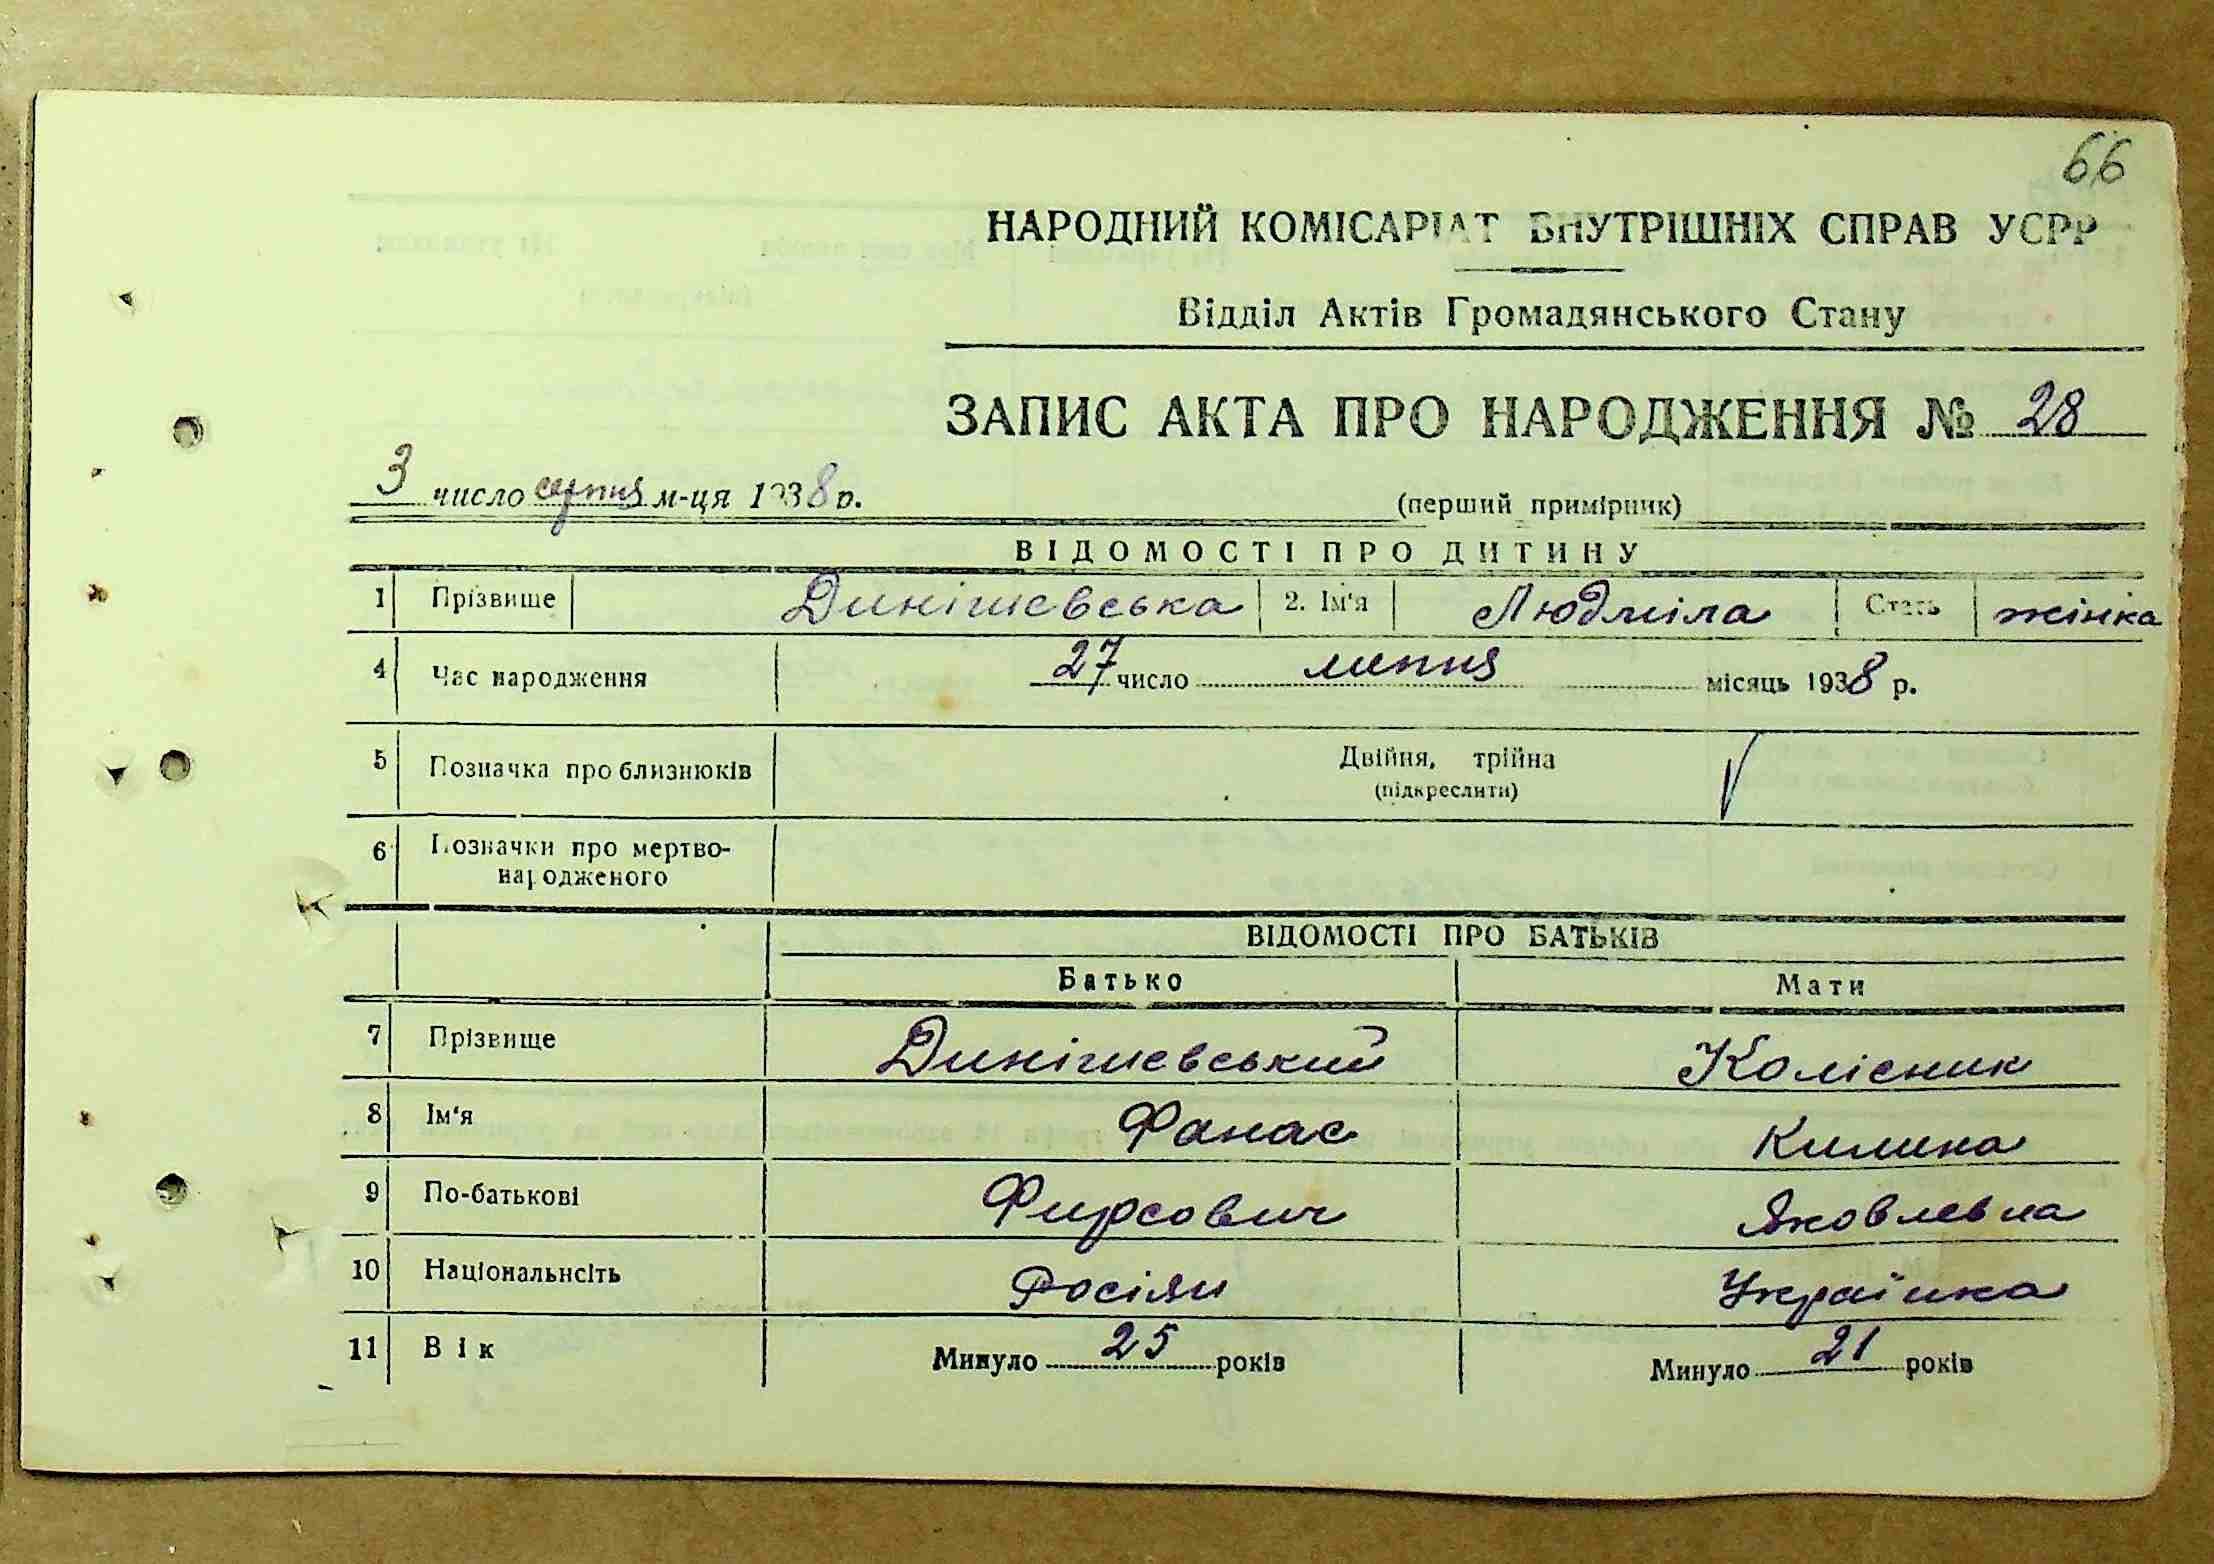 66
НАРОДНИЙ КОМІСАРІАТ ВНУТРІШНІХ СПРАВ УСРР
Відділ Актів Громадянського Стану
ЗАПИС АКТА ПРО НАРОДЖЕННЯ № 28
3 число серпня м-ця 1938 р.
(перший примірник)
ВІДОМОСТІ ПРО ДИТИНУ
1 Прізвище Динішевська 2. Ім'я Людміла Стать жінка
4 Час народження 27 число липня місяць 1938 р.
5 Позначка про близнюків Двійня, трійна
(підкреслити)
6 Позначки про мертво-
народженого
ВІДОМОСТІ ПРО БАТЬКІВ
Батько Мати
7 Прізвище Динішевський Колісник
8 Ім'я Фанас Килина
9 По-батькові Фирсович Яковлевна
10 Національнсіть Росіян Українка
11 Вік Минуло 25 років Минуло 21 років